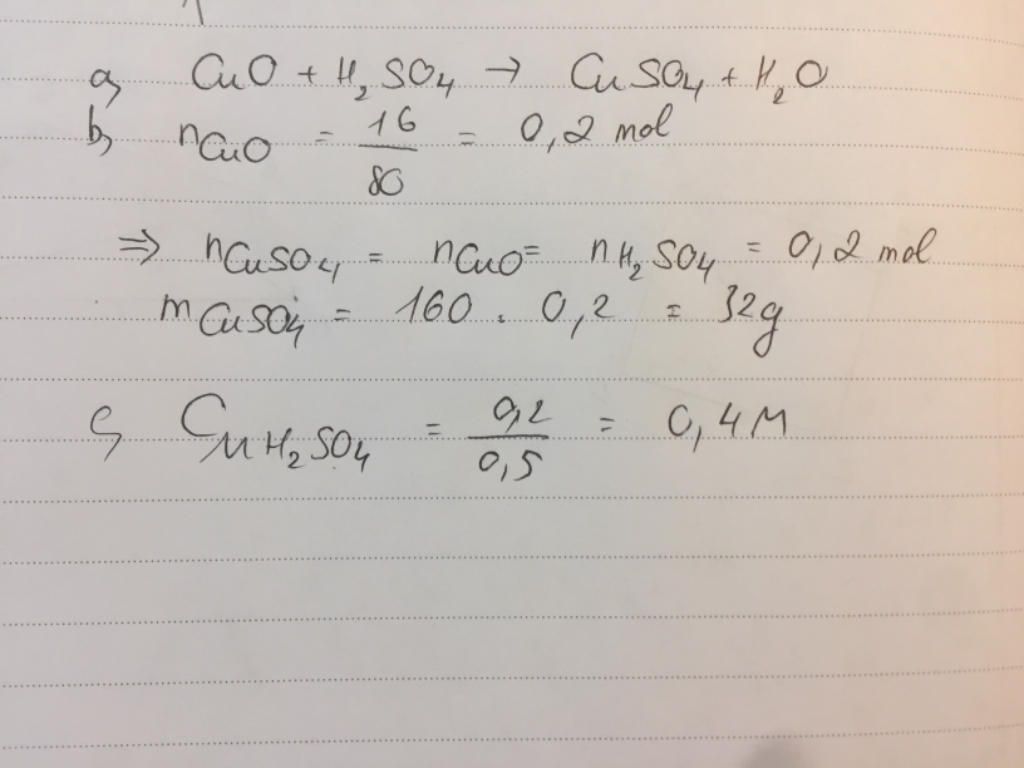 a, CuO + H₂SO₄ → CuSO₄ + H₂O
b, nCuO = 16/80 = 0,2 mol
⇒ nCuSO₄ = nCuO = nH₂SO₄ = 0,2 mol
mCuSO₄ = 160 . 0,2 = 32g
c, CM H₂SO₄ = 0,2/0,5 = 0,4M